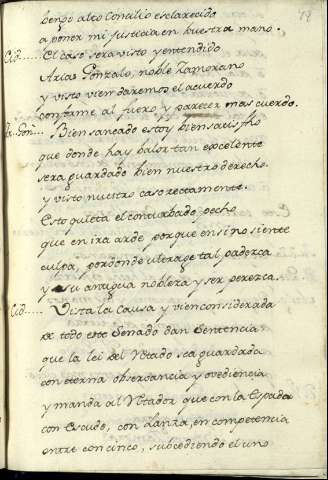 bengo alto Concilio esclarecido
a poner mi justicia en buestra mano.
Cid..... El caso sera visto y entendido
Arias Gonzalo, noble Zamorano
y visto vien daremos el acuerdo
conforme al fuero y parecer mas cuerdo.
Ar. Gon... Bien saneado estoy bien satisfho
que donde hay balor tan excelente
sera guardado bien nuestro derecho.
y visto nuestro caso rectamente.
Esto quieta el conturbado pecho
que en ira arde porque en si no siente
culpa, por donde ultrage tal padezca
y su antigua nobleza y ser perezca.
Cid..... Vista la causa y vien considerada
de todo este Senado dan Sentencia
que la lei del Retado sea guardada
con eterna observancia y ovediencia
y manda al Retador que con la Espada
con Escudo, con Lanza, en competencia
entre con cinco, subcediendo el uno